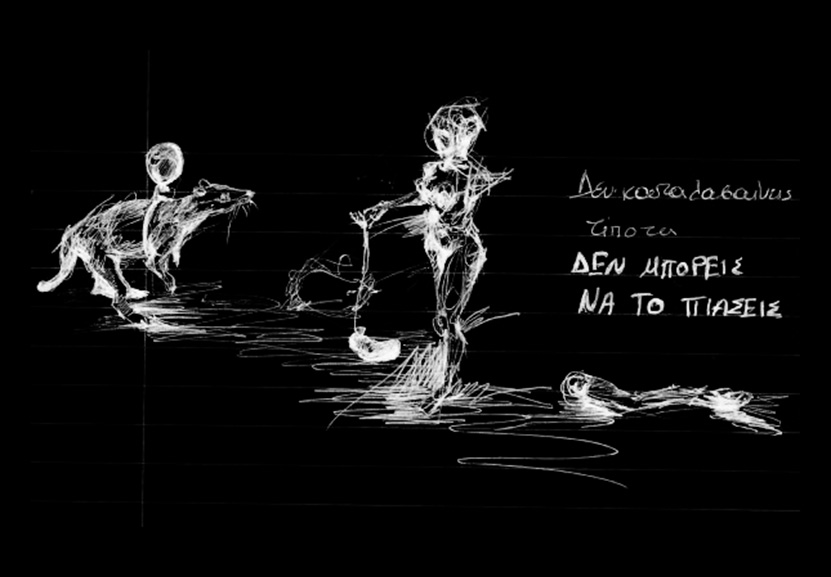 Δεν καταλαβαίνεις
τίποτα
ΔΕΝ ΜΠΟΡΕΙΣ
ΝΑ ΤΟ ΠΙΑΣΕΙΣ